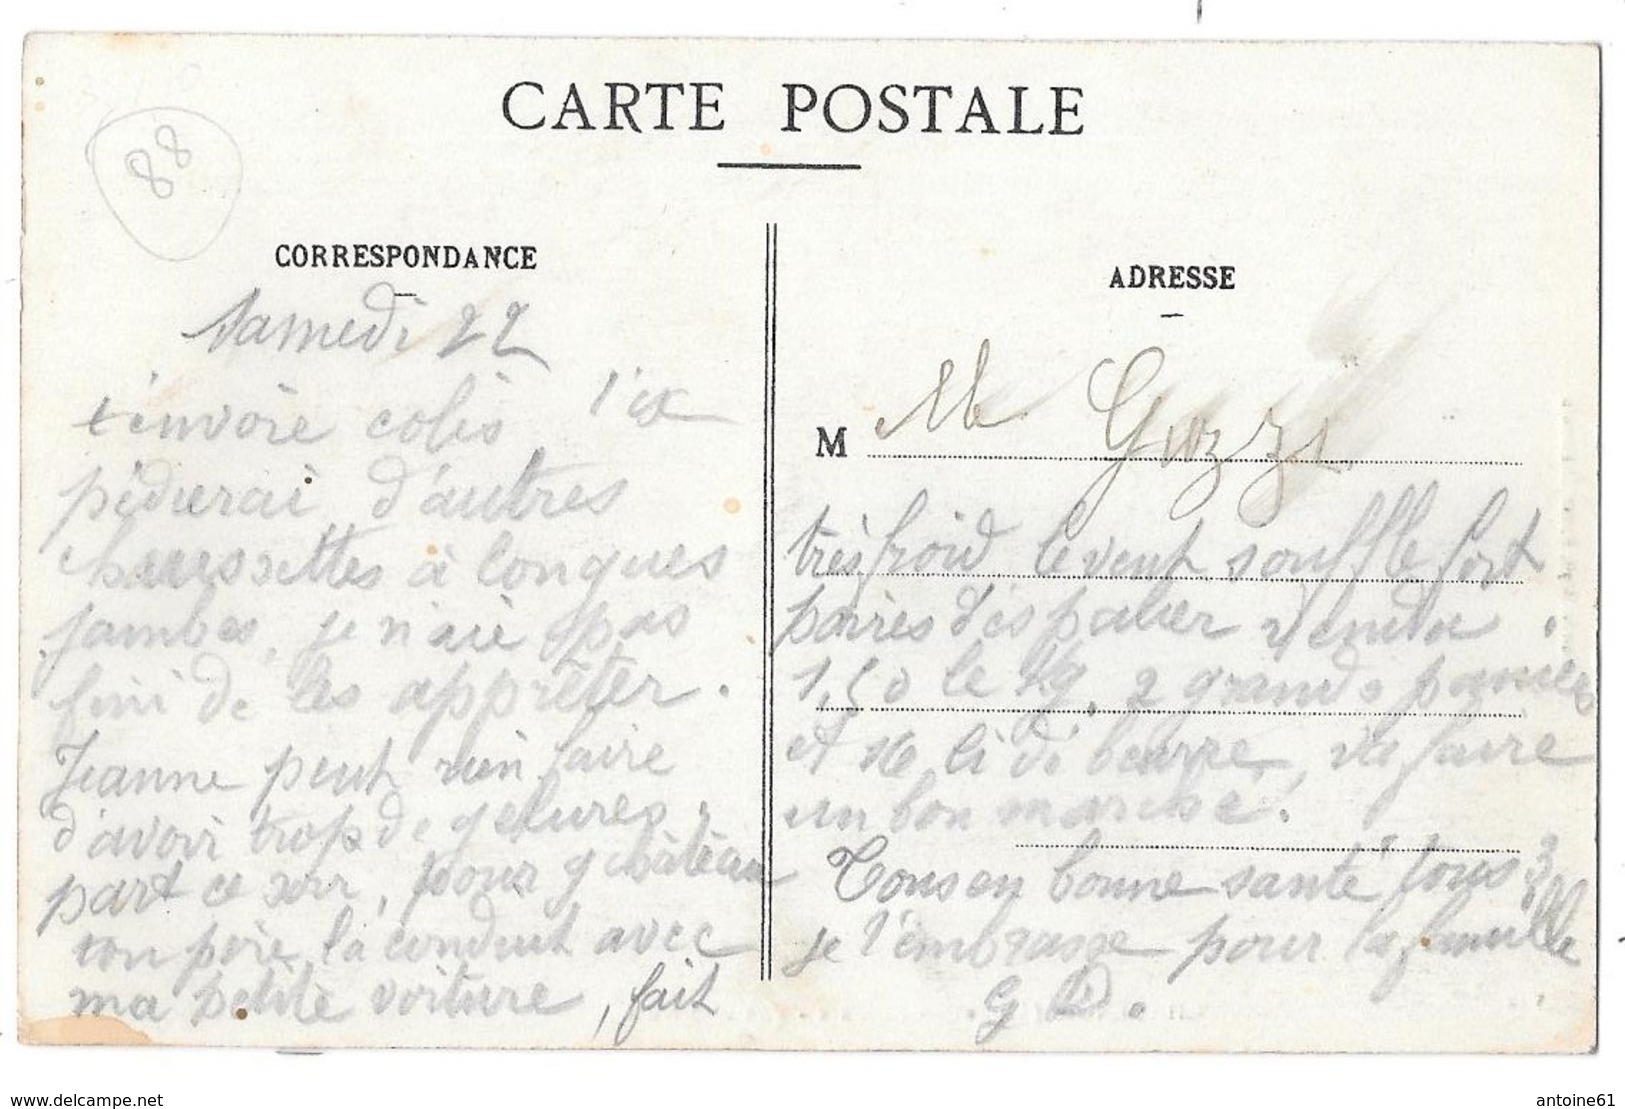 88
CARTE POSTALE
CORRESPONDANCE
Samedi 22
t'envoie colis
pédierai d'autres
chaussettes à longues
jambes, je n'aie pas
fini de les apprêter.
Jeanne peut rien faire
d'avoir trop de gelures,
part ce soir, pour château
ton père la conduit avec
ma petite voiture, fait
ADRESSE
M Gozzi
très froid le vent souffle fort
poires d'espalier vendu
1,50 le kg, 2 grands paniers
et 16 li di beurre, va faire
un bon marché.
Tous en bonne santé tous 3
je t'embrasse pour la famille
G D.
delcampe.net
antoine61